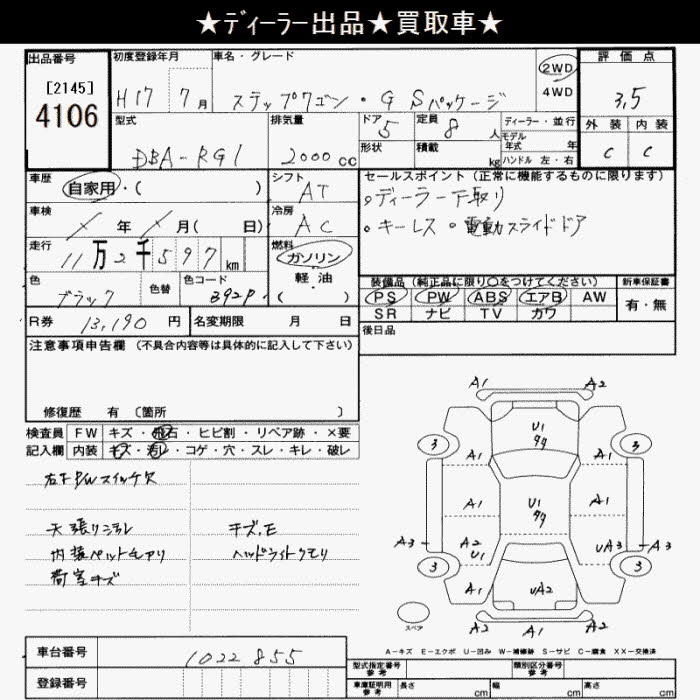 ★ディーラー出品★買取車★
出品番号
[2145]
4106
初度登録年月
H17 7月
車名・グレード
ステップワゴン・G Sパッケージ
2WD
4WD
評価点
3.5
外装 内装
C C
型式
DBA-RG1
排気量
2000cc
ドア
5
形状
定員
8人
積載
kg
ディーラー・並行
モデル年式 年
ハンドル 左・右
車歴
自家用・( )
シフト
AT
車検
年 月( 日)
冷房
AC
走行
11万2千597km
燃料
ガソリン
軽・油
( )
色
ブラック
色替
色コード
B92P
R券 13,190円
名変期限 月 日
セールスポイント(正常に機能するものに限ります)
○ディーラー下取り
・キーレス ○電動スライドドア
装備品(純正品に限り○をつけてください)
新車保証書
PS PW ABS エアB AW
SR ナビ TV カワ
有・無
後日品
注意事項申告欄(不具合内容等は具体的に記入して下さい)
修復歴 有 (箇所 )
検査員 FW キズ・飛石・ヒビ割・リペア跡・×要
記入欄 内装 キズ・汚レ・コゲ・穴・スレ・キレ・破レ
右下P/Wスイッチ欠
天張りシミ
キズ.E
内装ペットチアリ
ヘッドライトクモリ
荷室キズ
A1 A2
U1
99
3 3
A1 A1
A1 U1 A1
99
A3 A2 UA3 A3
U1
3 3
A1 UA2 A1
スペア
A2 A1 A2
A-キズ E-エクボ U-凹み W-補修跡 S-サビ C-腐食 XX-交換済
車台番号
1022855
登録番号
型式指定番号
参考
類別区分番号
参考
車庫証明用
参考
長さ cm
幅 cm
高さ cm